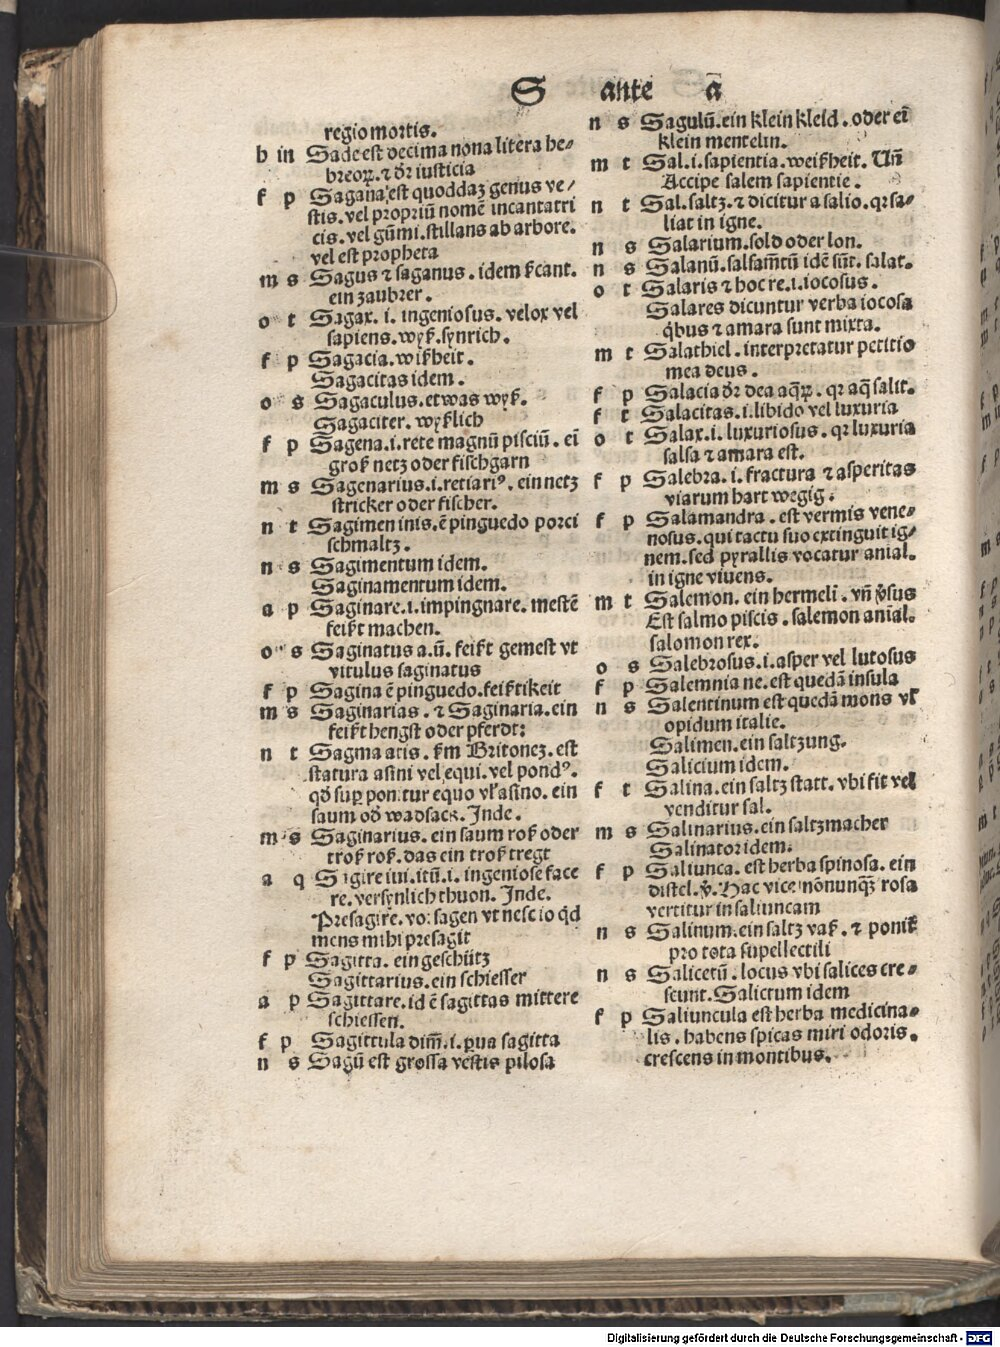 S ante ā
regio mortis.
h in Sade est decima nona litera he⸗
breoꝝ. ⁊ dr̄ iusticia
f p Sagana est quoddaꝫ genus ve⸗
stis. vel propriū nomē incantatri
cis. vel gūmi. stillans ab arbore.
vel est propheta
m s Sagus ⁊ saganus. idem ſcant.
ein zaubrer.
o t Sagax. i. ingeniosus. velox vel
sapiens. wyß. synrich.
f p Sagacia. wißheit.
Sagacitas idem.
o s Sagaculus. etwas wyß.
Sagaciter. wyßlich
f p Sagena. i. rete magnū pisciū. eī
groß netz oder fischgarn
m s Sagenarius. i. retiariꝰ. ein netz
stricker oder fischer.
n t Sagimen inis. ē pinguedo porci
schmaltz.
n s Sagimentum idem.
Saginamentum idem.
a p Saginare. i. impingnare. mestē
feißt machen.
o s Saginatus a. ū. feißt gemest vt
vitulus saginatus
f p Sagina ē pinguedo. feißtikeit
m s Saginarias. ⁊ Saginaria. ein
feißt hengst oder pferdt:
n t Sagma atis. ſm Britoneꝫ. est
statura asini vel equi. vel pondꝰ.
qđ suꝑ ponitur equo vl̓ asino. ein
saum od̓ wadsack. Inde.
m s Saginarius. ein saum roß oder
troß roß. das ein troß tregt
a q Sagire iui. itū. i. ingeniose face
re. versynlich thuon. Inde.
Presagire. vor sagen vt nescio qđ
mens mihi presagit
f p Sagitta. ein geschütz
Sagittarius. ein schiesser
a p Sagittare. id ē sagittas mittere
schiessen.
f p Sagittula dim̄. i. ꝑua sagitta
n s Sagū est grossa vestis pilosa
n s Sagulū. ein klein kleid. oder eī
klein mentelin.
m t Sal. i. sapientia. weißheit. Un̄
Accipe salem sapientie.
n t Sal. saltz. ⁊ dicitur a salio. qꝛ sa⸗
liat in igne.
n s Salarium. sold oder lon.
n s Salanū. salsam̄tū idē sūt. salat.
o t Salaris ⁊ hoc re. i. iocosus.
Salares dicuntur verba iocosa
q̇bus ⁊ amara sunt mixta.
m t Salathiel. interpretatur petitio
mea deus.
f p Salacia dr̄ dea aq̄ꝝ. qꝛ aq̄ salit.
f t Salacitas. i. libido vel luxuria
o t Salax. i. luxuriosus. qꝛ luxuria
salsa ⁊ amara est.
f p Salebra. i. fractura ⁊ asperitas
viarum hart wegig.
f p Salamandra. est vermis vene⸗
nosus. qui tactu suo extinguit ig⸗
nem. sed pyrallis vocatur anial.
in igne viuens.
m t Salemon. ein hermeli. vn̄ v̓sus
Est salmo piscis. salemon anīal.
salomon rex.
o s Salebrosus. i. asper vel lutosus
f p Salemnia ne. est quedā insula
n s Salentinum est quedā mons vl̓
opidum italie.
Salimen. ein saltzung.
Salicium idem.
f t Salina. ein saltz statt. vbi fit vel
venditur sal.
m s Salinarius. ein saltzmacher
Salinator idem.
f p Saliunca. est herba spinosa. ein
distel. v̓. Hac vice nōnunqꝫ rosa
vertitur in saliuncam
n s Salinum. ein saltz vaß. ⁊ poniť
pro tota supellectili
n s Salicetū. locus vbi salices cre⸗
scunt. Salictum idem
f p Saliuncula est herba medicina⸗
lis. habens spicas miri odoris.
crescens in montibus.
Digitalisierung gefördert durch die Deutsche Forschungsgemeinschaft - DFG